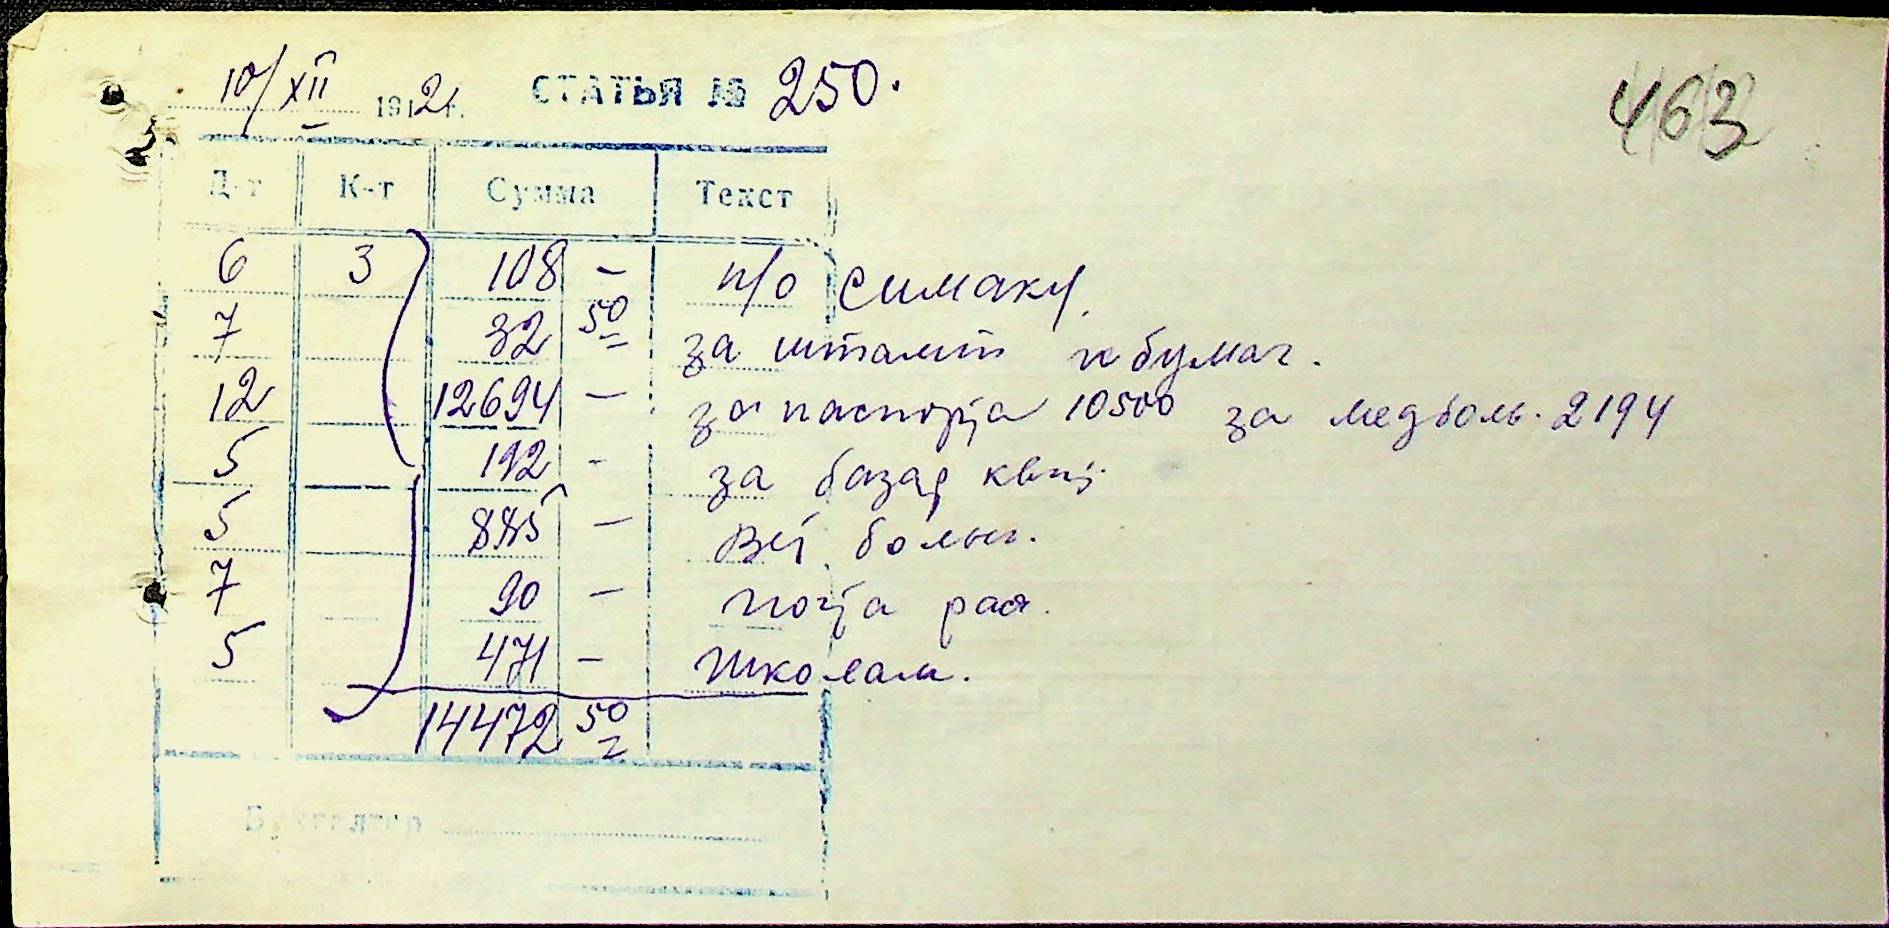 10/XII 1942 г. СТАТЬЯ № 250.
463
Д-т К-т Сумма Текст
6 3 108 — п/о Симаку.
7 32 50 за штамп и бумаг.
12 12694 — за паспорта 10500 за медболь. 2194
5 192 - за базар квит.
5 885 — больн.
7 90 — почта
5 471 — школам.
14472 50
Бухгалтер